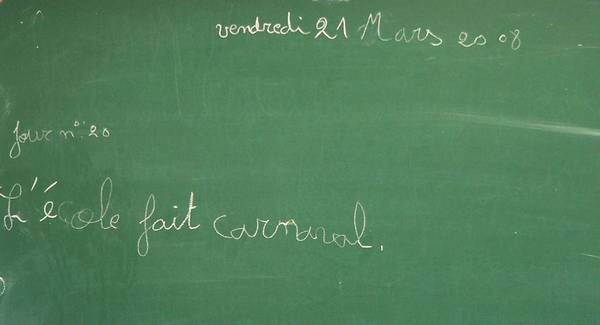 vendredi 21 Mars 2008
Jour n° 20
L'école fait carnaval.